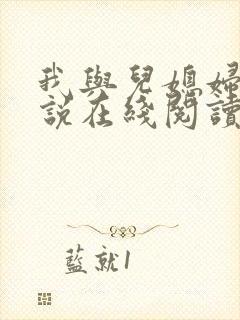 我與兒媳婦
說在綫閱讀
藍就1